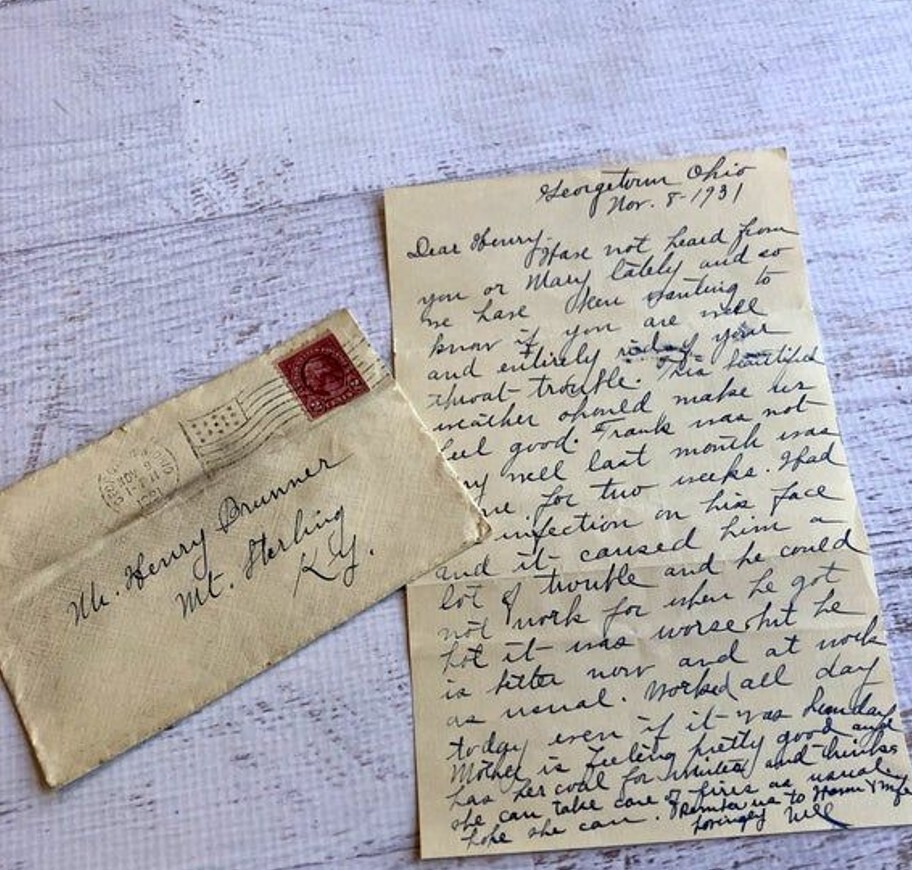 Georgetown Ohio
Nov. 8-1931
Dear Henry-
Have not heard from
you or Mary lately and so
we have been wanting to
know if you are well
and entirely rid of your
throat trouble. This beautiful
weather should make us
feel good. Frank was not
very well last month was
for two weeks. Had
infection on his face
and it caused him a
lot of trouble and he could
not work for when he got
hot it was worse but he
is better now and at work
as usual. Worked all day
today even if it was Sunday
Mother is feeling pretty good and
has her coal for winter and thinks
she can take care of fires as usual
hope she can. Remember us to &
Lovingly Will
NOV 9
1931
2 2
Mr. Henry Brunner
Mt. Sterling
Ky.